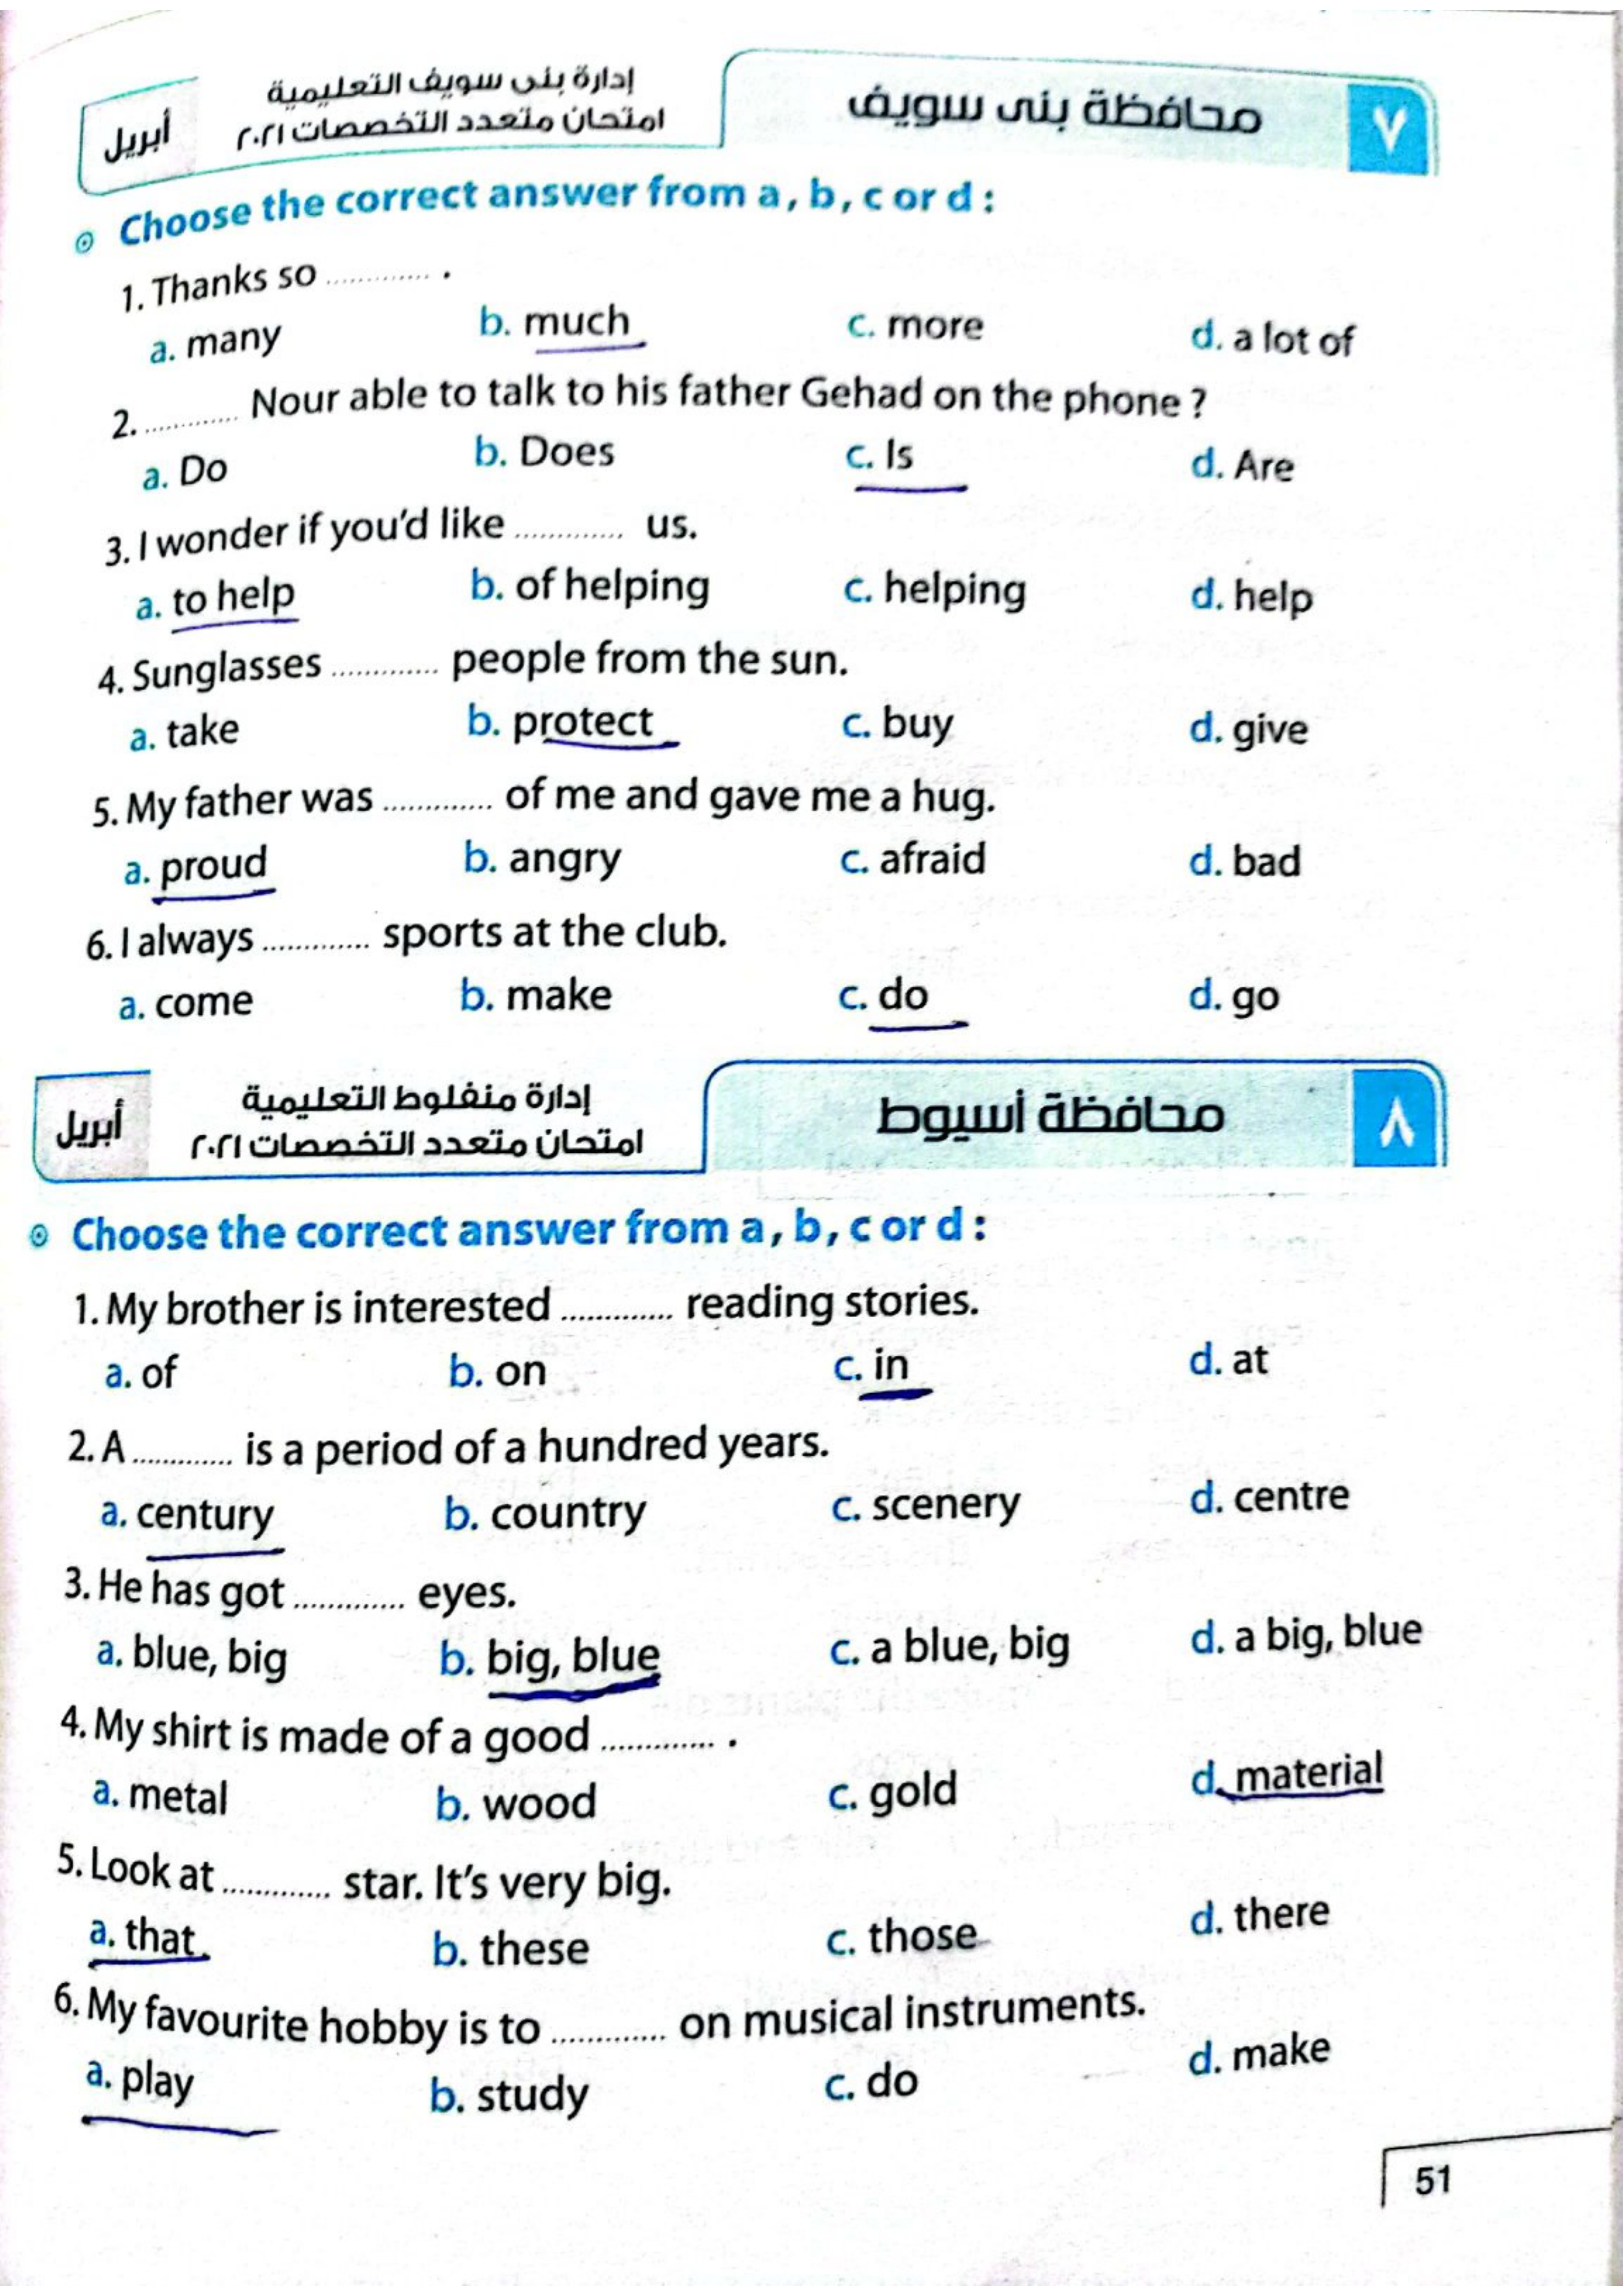 ٧ محافظة بنى سويف
إدارة بنى سويف التعليمية
امتحان متعدد التخصصات ٢٠٢١
أبريل
Choose the correct answer from a , b , c or d :
1. Thanks so ............ .
a. many b. much c. more d. a lot of
2. ............ Nour able to talk to his father Gehad on the phone ?
a. Do b. Does c. Is d. Are
3. I wonder if you'd like ............ us.
a. to help b. of helping c. helping d. help
4. Sunglasses ............ people from the sun.
a. take b. protect c. buy d. give
5. My father was ............ of me and gave me a hug.
a. proud b. angry c. afraid d. bad
6. I always ............ sports at the club.
a. come b. make c. do d. go
٨ محافظة أسيوط
إدارة منفلوط التعليمية
امتحان متعدد التخصصات ٢٠٢١
أبريل
Choose the correct answer from a , b , c or d :
1. My brother is interested ............ reading stories.
a. of b. on c. in d. at
2. A ............ is a period of a hundred years.
a. century b. country c. scenery d. centre
3. He has got ............ eyes.
a. blue, big b. big, blue c. a blue, big d. a big, blue
4. My shirt is made of a good ............ .
a. metal b. wood c. gold d. material
5. Look at ............ star. It's very big.
a. that b. these c. those d. there
6. My favourite hobby is to ............ on musical instruments.
a. play b. study c. do d. make
51